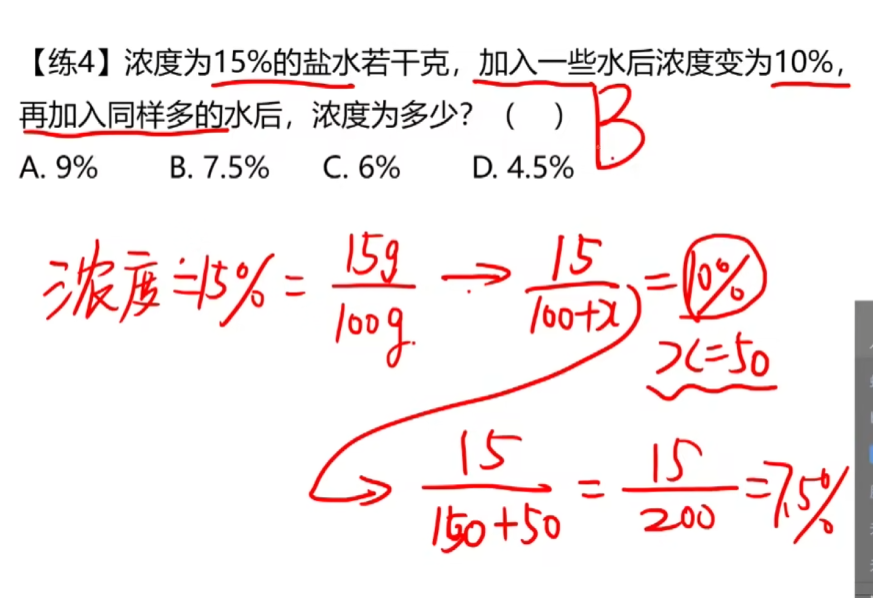 【练4】浓度为15%的盐水若干克，加入一些水后浓度变为10%，
再加入同样多的水后，浓度为多少？（ ） B
A. 9% B. 7.5% C. 6% D. 4.5%
浓度=15% = 15g/100g → 15/(100+x) = 10%
x=50
→ 15/(150+50) = 15/200 = 7.5%